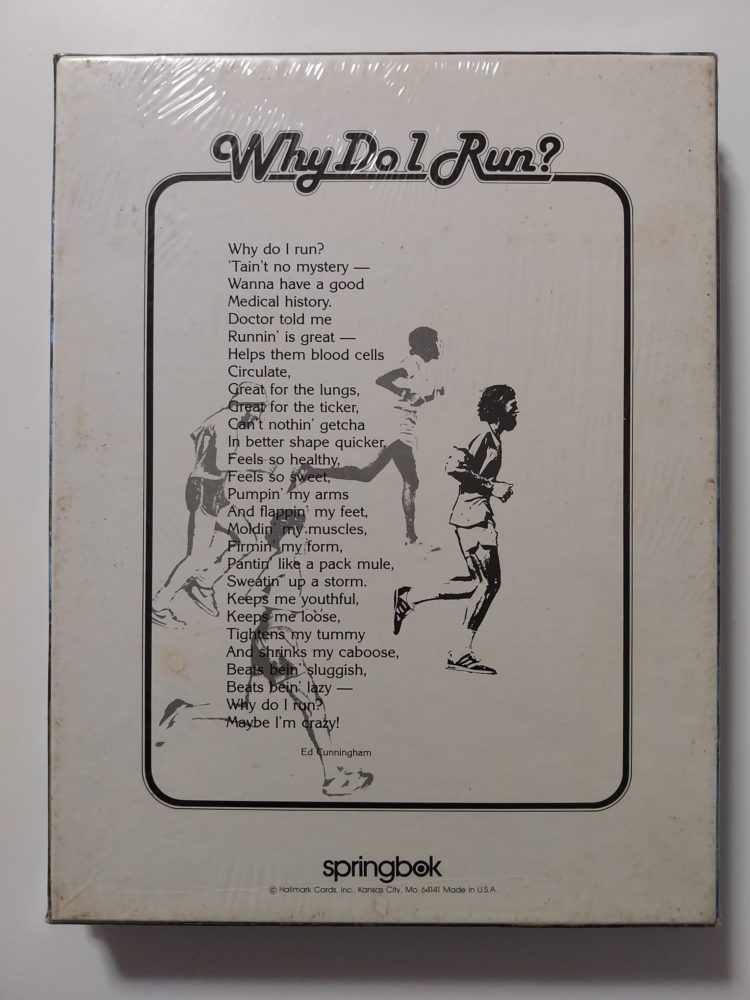 Why Do I Run?
Why do I run?
'Tain't no mystery —
Wanna have a good
Medical history.
Doctor told me
Runnin' is great —
Helps them blood cells
Circulate,
Great for the lungs,
Great for the ticker,
Can't nothin' getcha
In better shape quicker.
Feels so healthy,
Feels so sweet,
Pumpin' my arms
And flappin' my feet,
Moldin' my muscles,
Firmin' my form,
Pantin' like a pack mule,
Sweatin' up a storm.
Keeps me youthful,
Keeps me loose,
Tightens my tummy
And shrinks my caboose,
Beats bein' sluggish,
Beats bein' lazy —
Why do I run?
Maybe I'm crazy!
Ed Cunningham
springbok
© Hallmark Cards, Inc., Kansas City, Mo. 64141 Made in U.S.A.